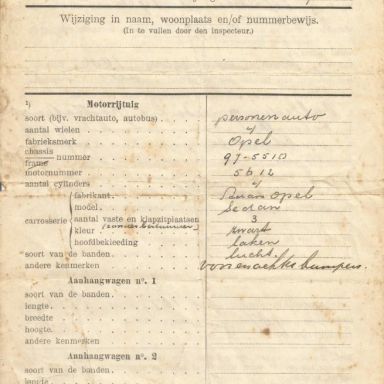 Wijziging in naam, woonplaats en/of nummerbewijs.
(In te vullen door den inspecteur.)
1) Motorrijtuig
soort (bijv. vrachtauto, autobus) personenauto
aantal wielen 4
fabrieksmerk Opel
chassis
frame nummer 97-5510
motornummer 5612
aantal cylinders 4
carrosserie
fabrikant. Opel
model. Sedan
aantal vaste en klapzitplaatsen 3
kleur zwart
hoofdbekleeding laken
soort van de banden lucht.
andere kenmerken voor en achter bumpers
Aanhangwagen no. 1
soort van de banden
lengte
breedte
hoogte
andere kenmerken
Aanhangwagen no. 2
soort van de banden
lengte